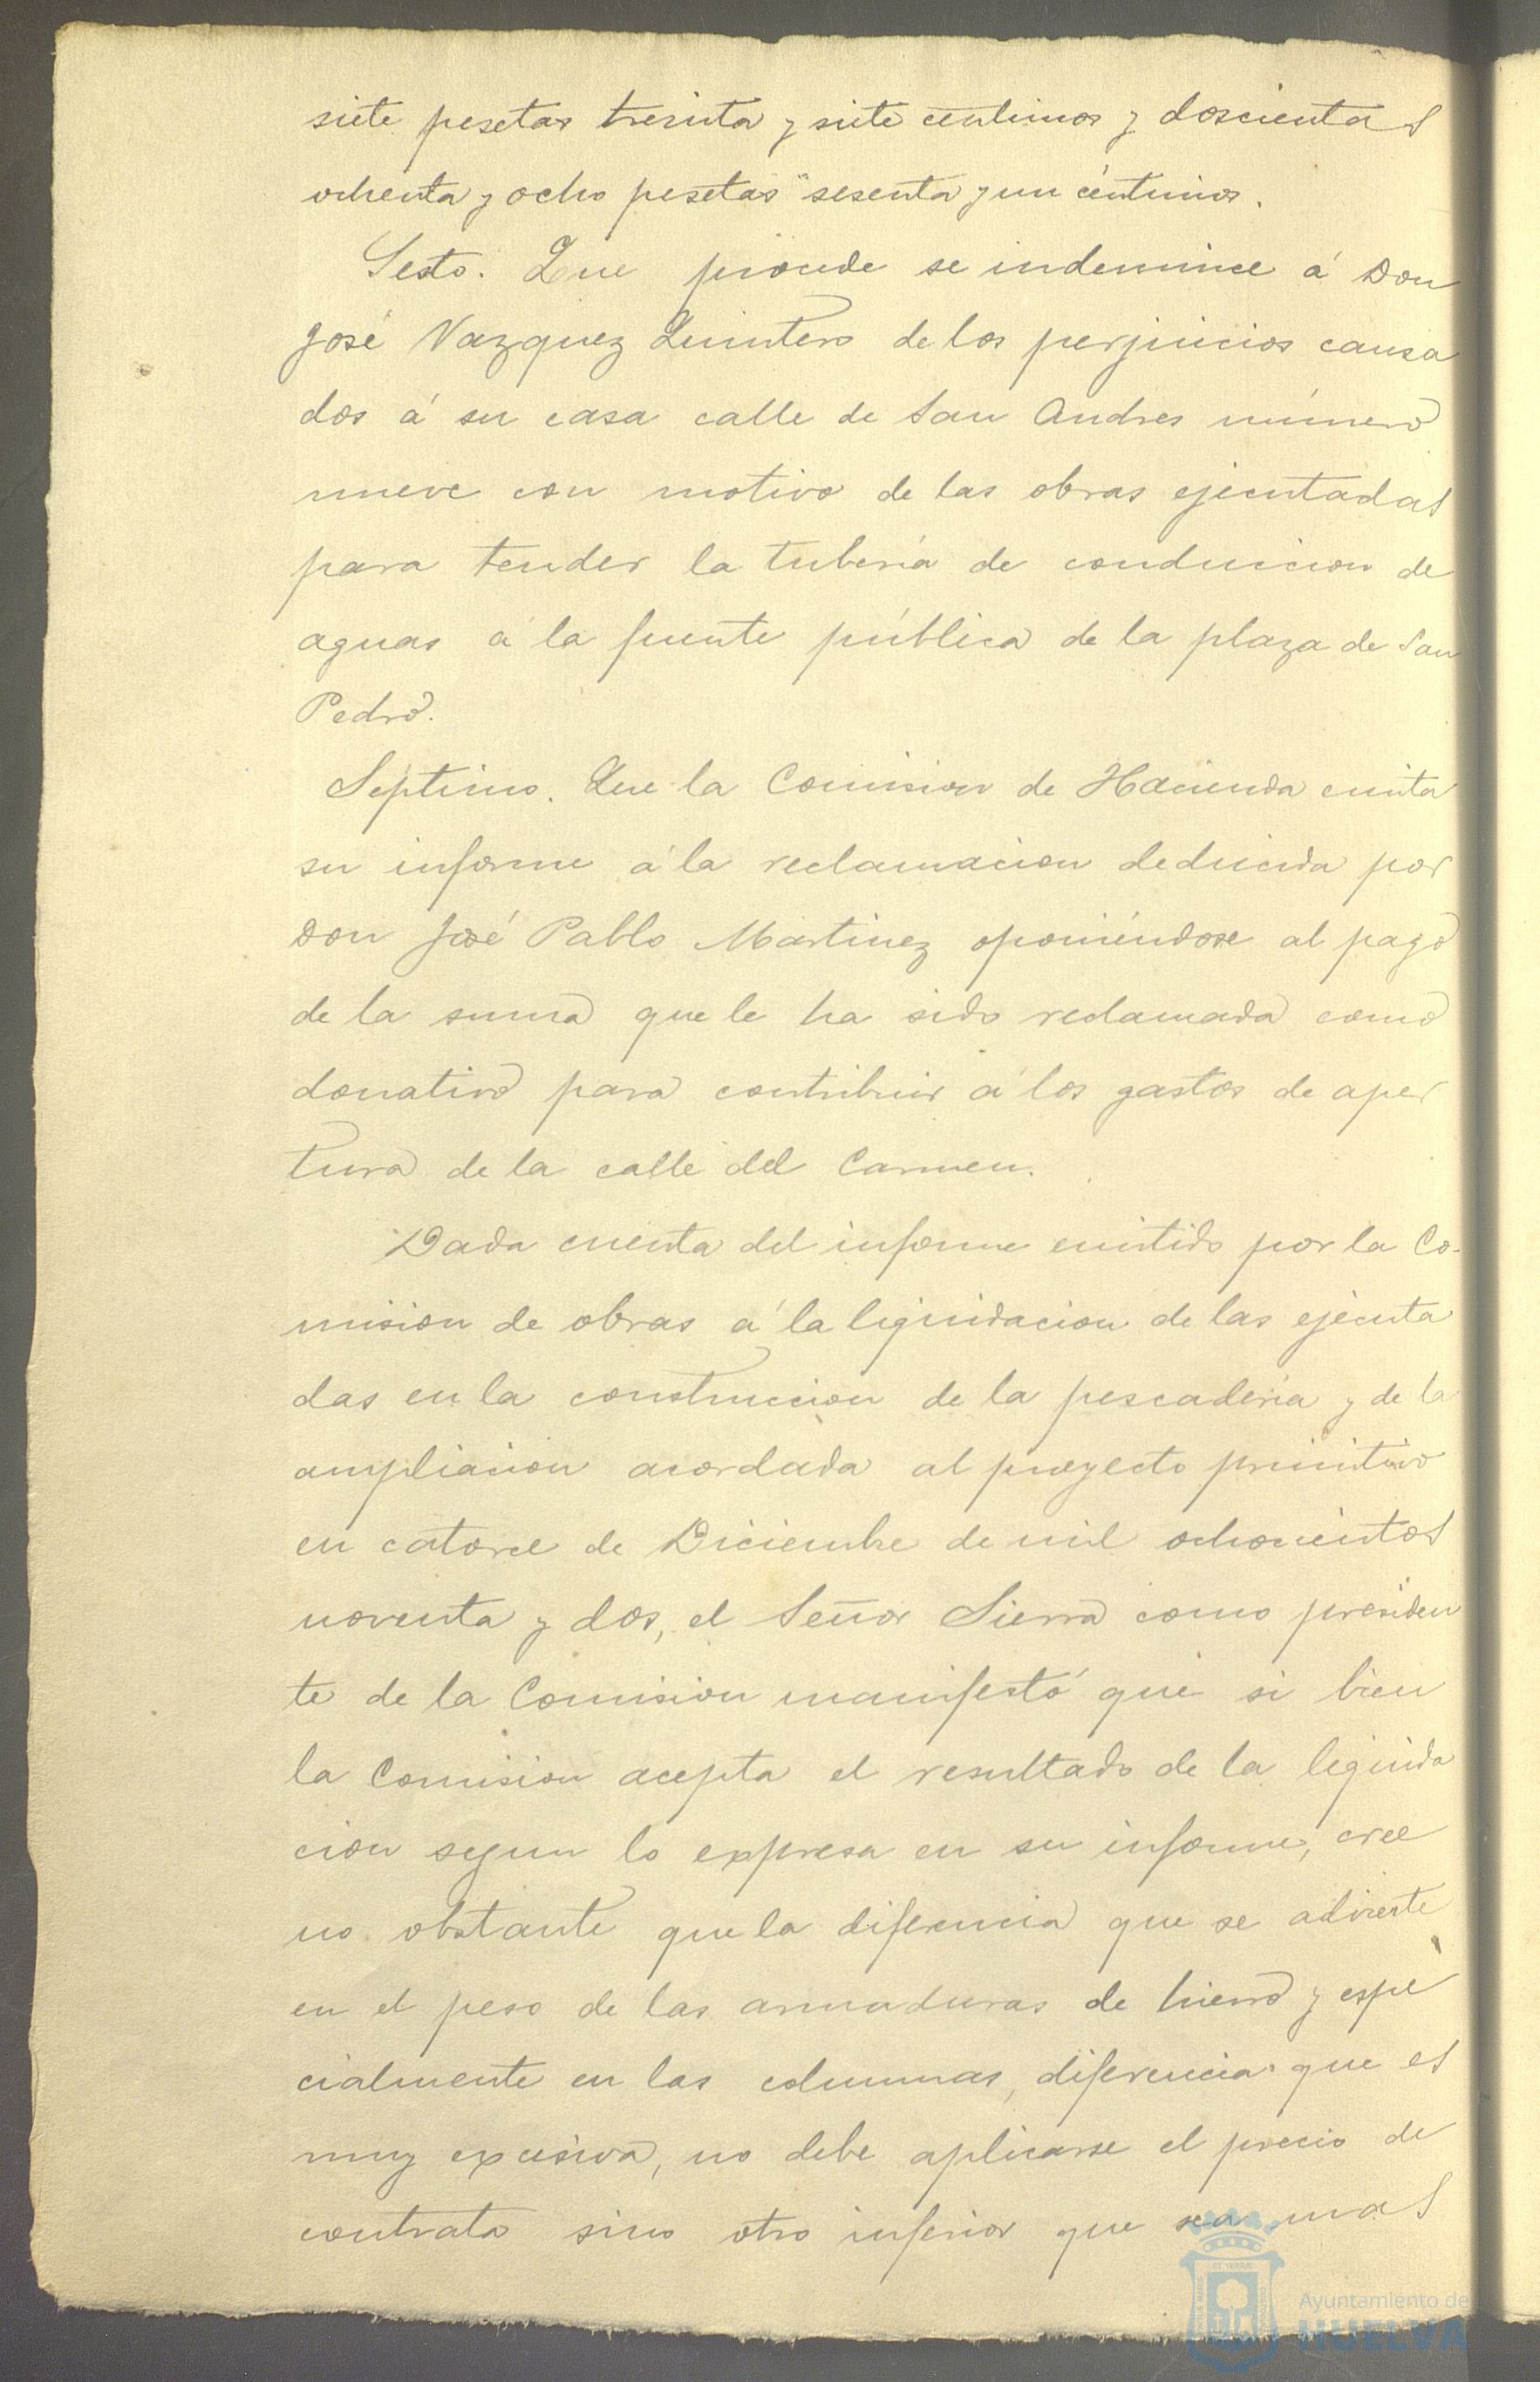 siete pesetas treinta y siete centimos y doscientas
ochenta y ocho pesetas sesenta y un céntimos.
Sesto. Que procede se indemnice á Don
José Vazquez Quintero de los perjuicios causa
dos á su casa calle de San Andres número
nueve con motivo de las obras ejecutadas
para tender la tubería de conduccion de
aguas á la fuente pública de la plaza de San
Pedro.
Séptimo. Que la Comision de Hacienda emita
su informe á la reclamacion deducida por
Don José Pablo Martinez oponiéndose al pago
de la suma que le ha sido reclamada como
donativo para contribuir á los gastos de aper
tura de la calle del Carmen.
Dada cuenta del informe emitido por la Co-
mision de obras á la liquidacion de las ejecuta
das en la construccion de la pescadería y de la
ampliacion acordada al proyecto primitivo
en catorce de Diciembre de mil ochocientos
noventa y dos, el Señor Sierra como presiden
te de la Comision manifestó que si bien
la Comision acepta el resultado de la liquida
cion segun lo expresa en su informe, cree
no obstante que la diferencia que se advierte
en el peso de las armaduras de hierro y espe
cialmente en las columnas, diferencia que es
muy excesiva, no debe aplicarse el precio de
contrata sino otro inferior que sea mas
Ayuntamiento de
HUELVA